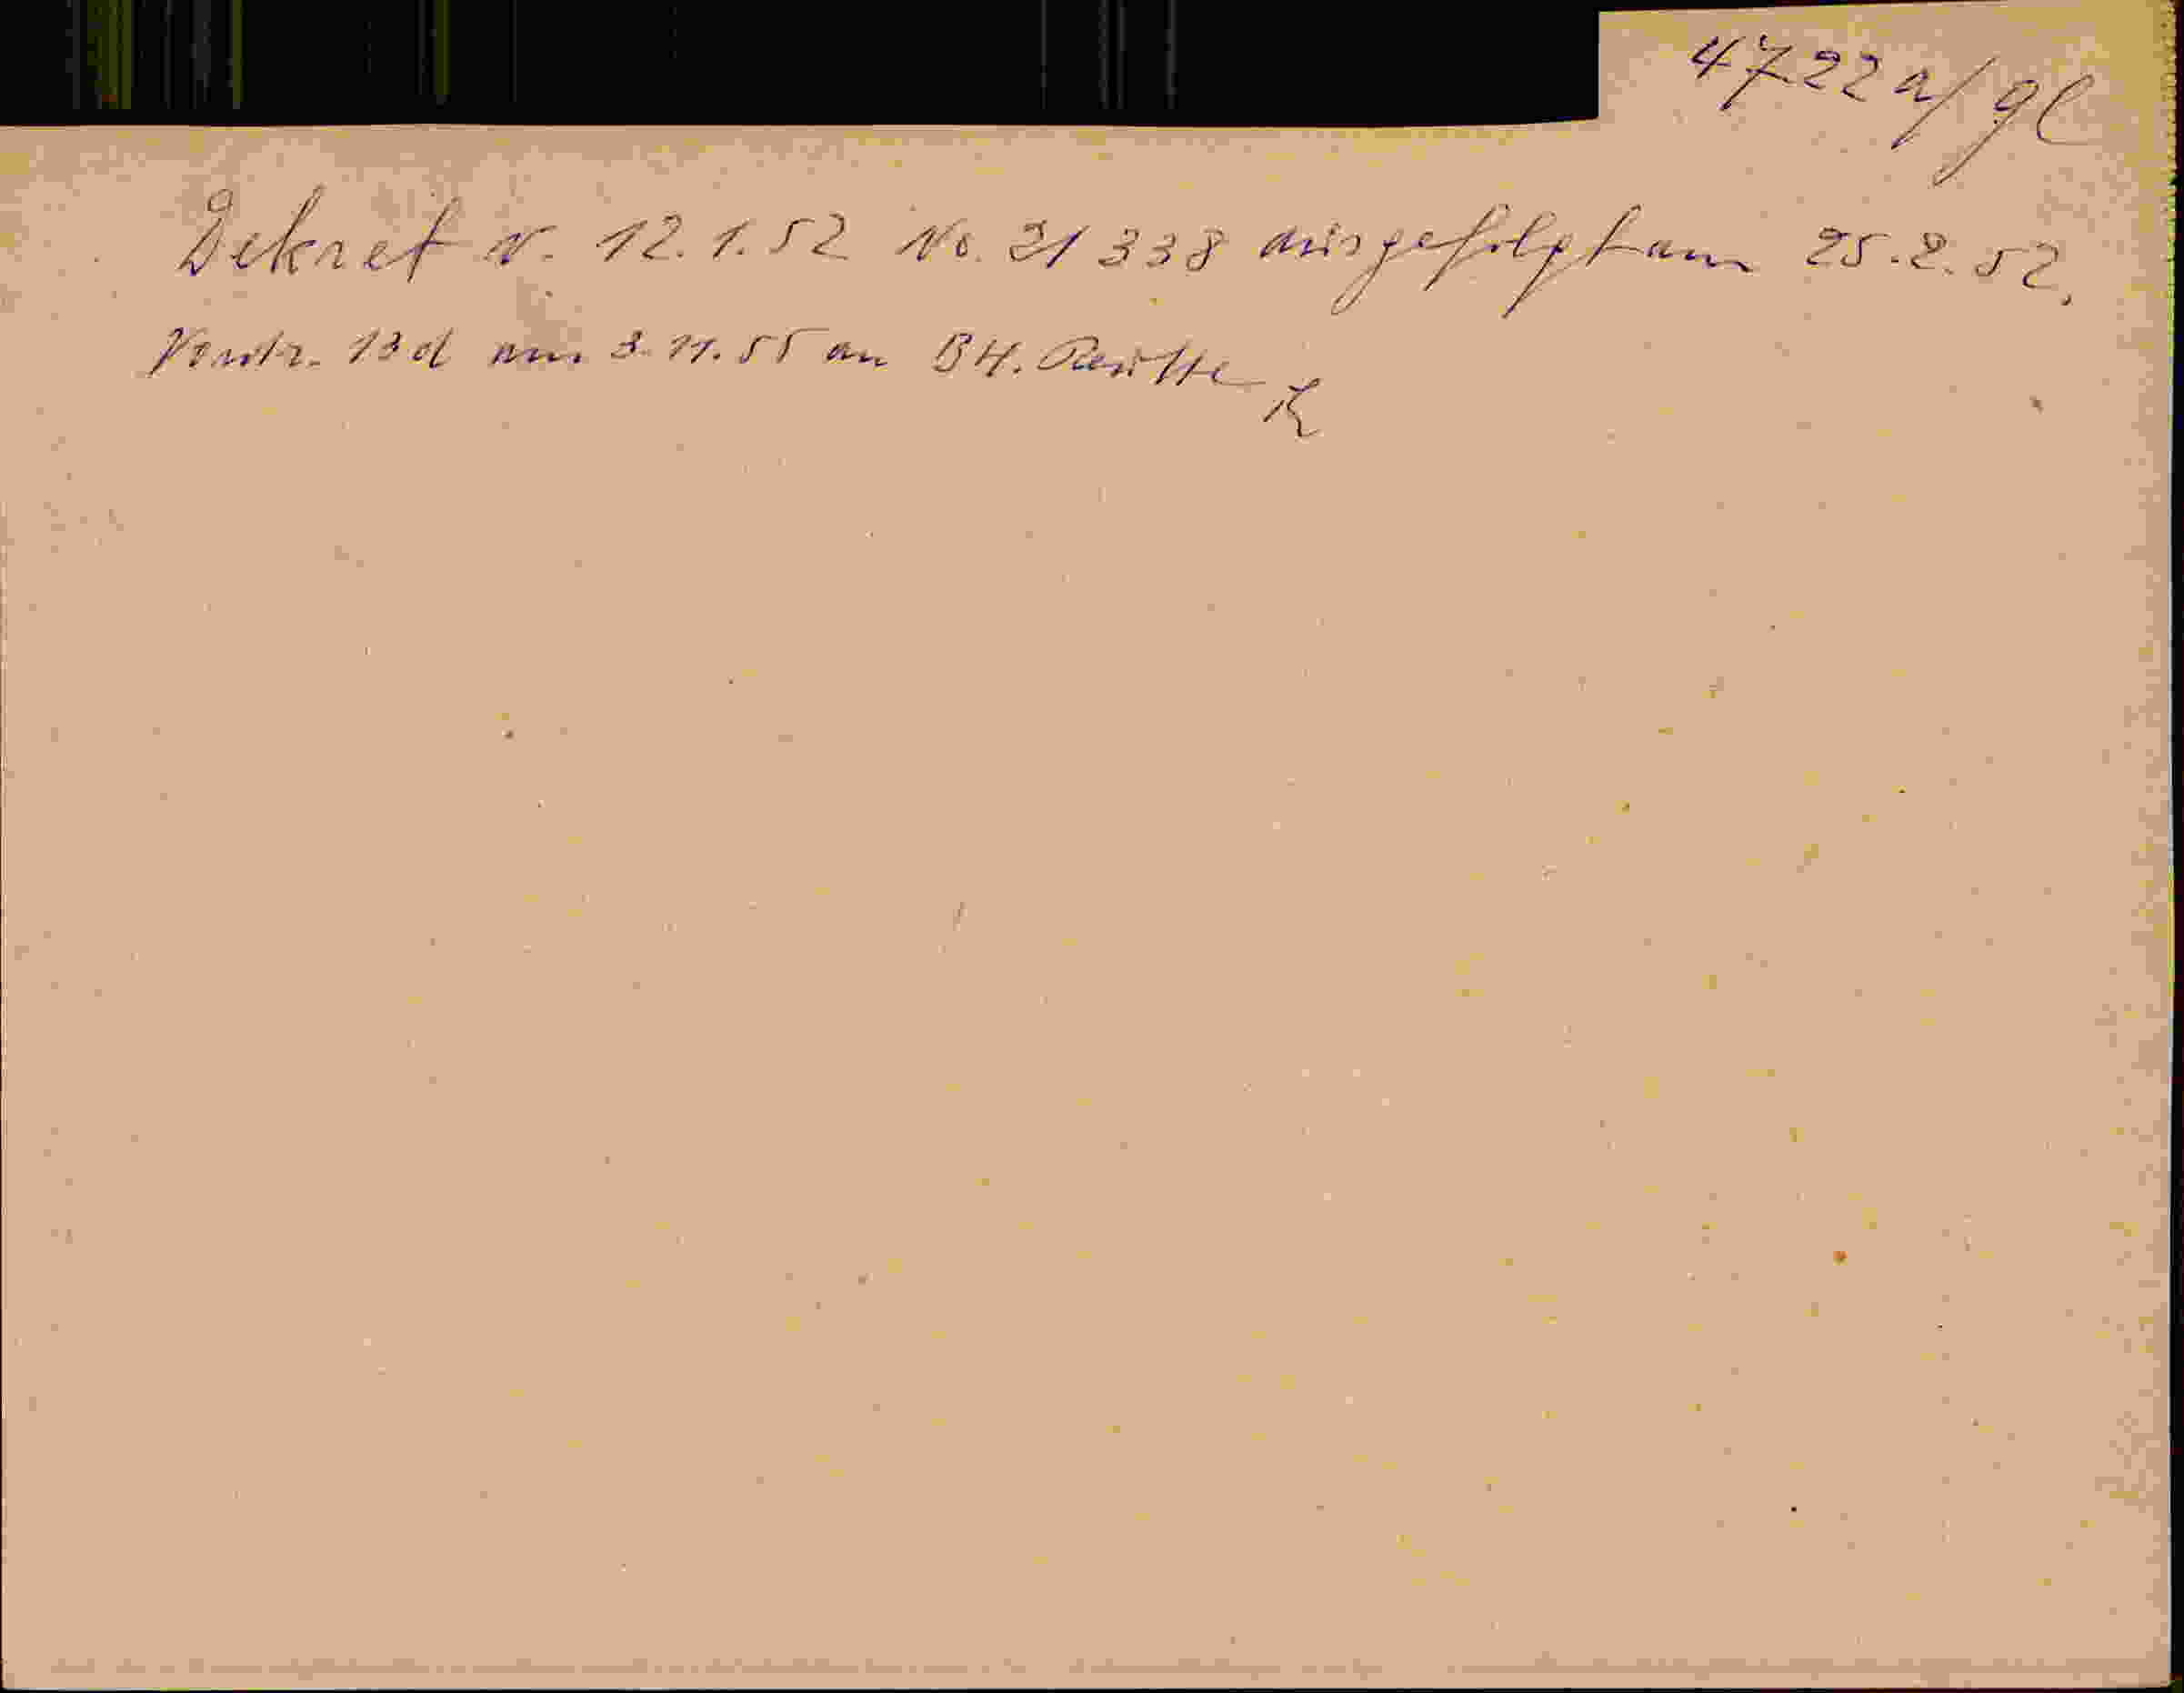 4722a/gl
Dekret v. 12.1.52 No. 21 338 ausgefolgt am 25.2.52.
13d am 3.11.55 an BH. Reutte